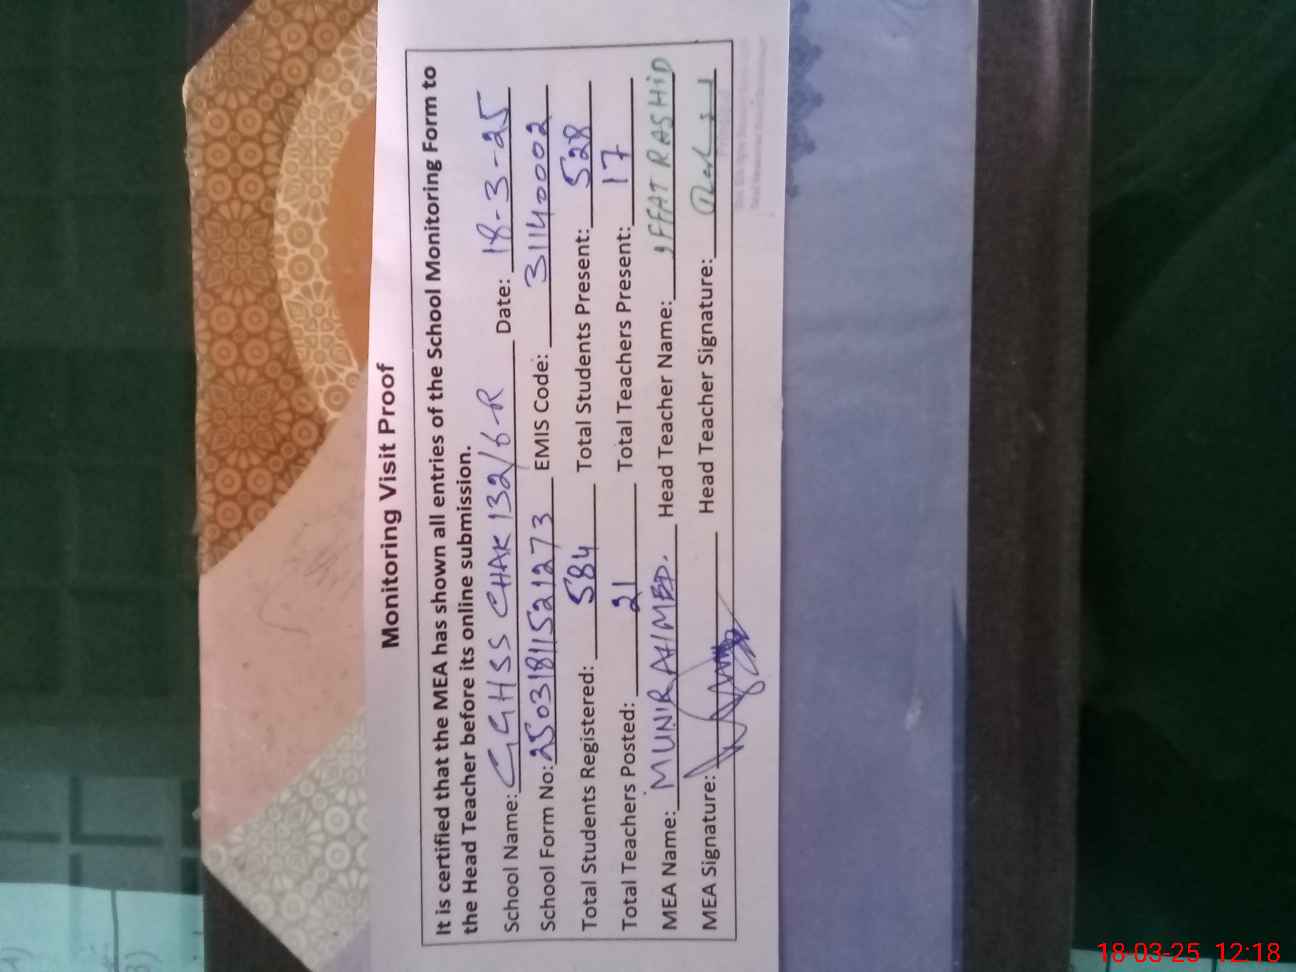 Monitoring Visit Proof
It is certified that the MEA has shown all entries of the School Monitoring Form to
the Head Teacher before its online submission.
School Name: GGHSS CHAK 132/6-R Date: 18-3-25
School Form No: 25031811521273 EMIS Code: 31140002
Total Students Registered: 584 Total Students Present: 528
Total Teachers Posted: 21 Total Teachers Present: 17
MEA Name: MUNIR AHMED. Head Teacher Name: IFFAT RASHID
MEA Signature: Head Teacher Signature:
18-03-25 12:18